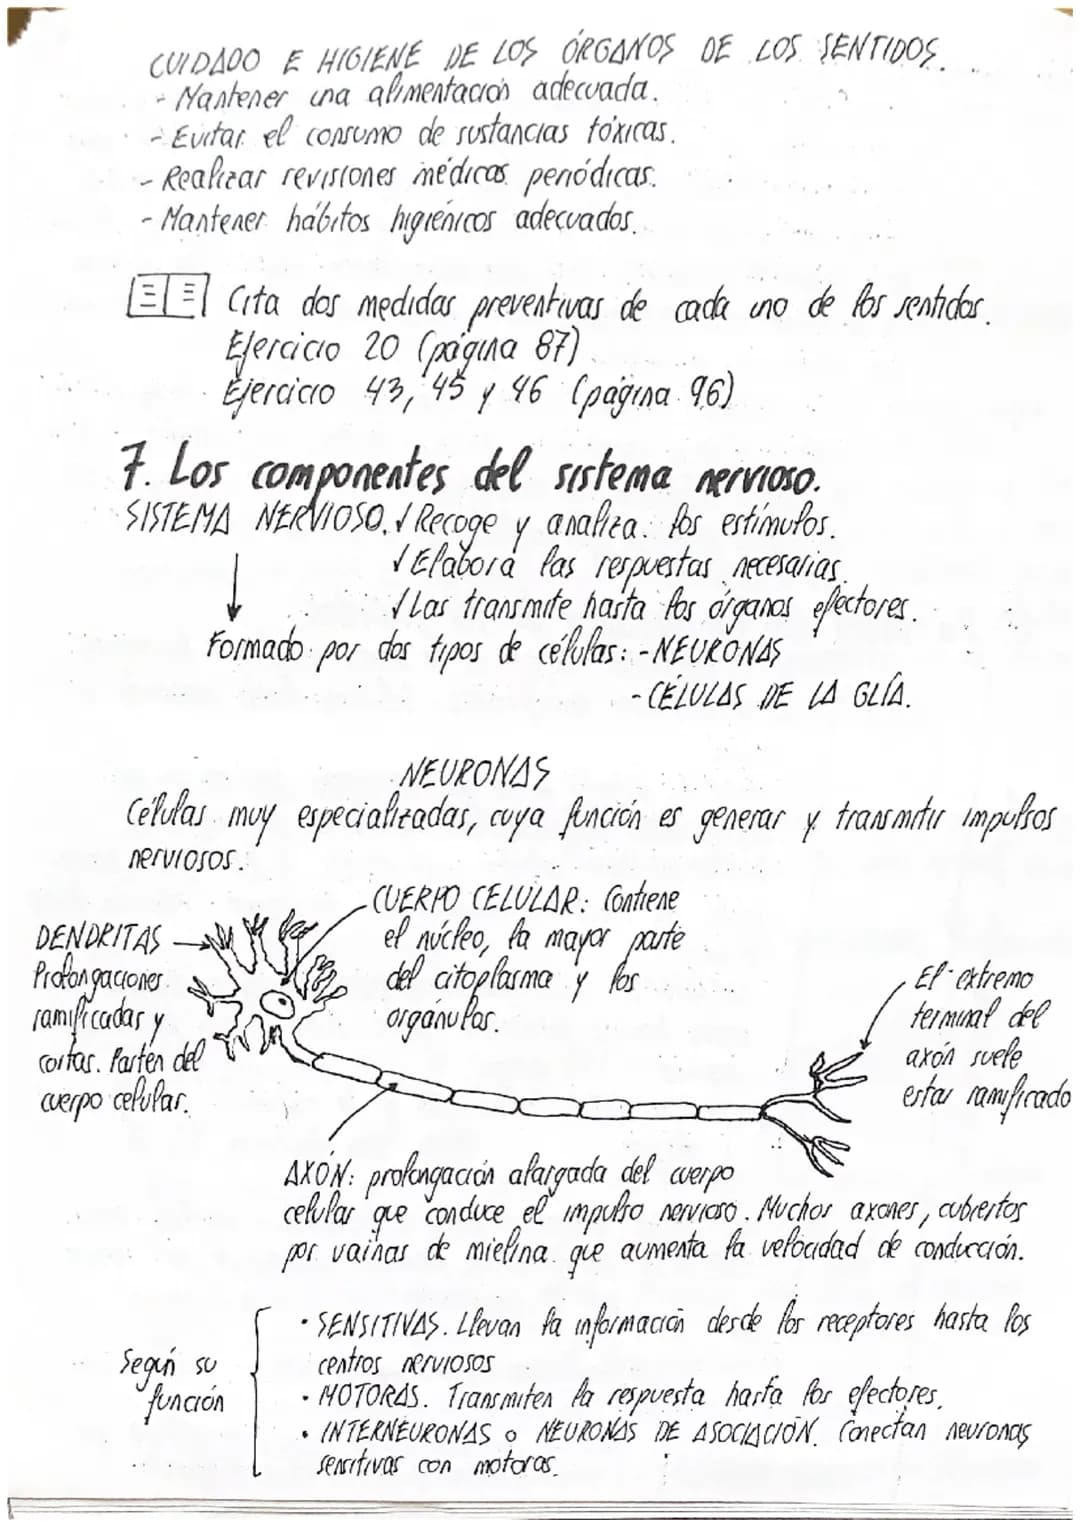 CUIDADO E HIGIENE DE LOS ÓRGANOS DE LOS SENTIDOS.
- Mantener una alimentación adecuada.
- Evitar el consumo de sustancias tóxicas.
- Realizar revisiones médicas periódicas.
- Mantener hábitos higiénicos adecuados.
Cita dos medidas preventivas de cada uno de los sentidos.
Ejercicio 20 (página 87)
Ejercicio 43, 45 y 46 (página 96)
7. Los componentes del sistema nervioso.
SISTEMA NERVIOSO. √ Recoge y analiza los estímulos.
√ Elabora las respuestas necesarias.
√ Las transmite hasta los órganos efectores.
Formado por dos tipos de células: - NEURONAS
- CÉLULAS DE LA GLÍA.
NEURONAS
Células muy especializadas, cuya función es generar y transmitir impulsos
nerviosos.
CUERPO CELULAR: Contiene
el núcleo, la mayor parte
del citoplasma y los
orgánulos.
DENDRITAS
Prolongaciones
ramificadas y
cortas. Parten del
cuerpo celular.
El extremo
terminal del
axón suele
estar ramificado
AXÓN: prolongación alargada del cuerpo
celular que conduce el impulso nervioso. Muchos axones, cubiertos
por vainas de mielina que aumenta la velocidad de conducción.
Según su
función
· SENSITIVAS. Llevan la información desde los receptores hasta los
centros nerviosos
· MOTORAS. Transmiten la respuesta hasta los efectores.
· INTERNEURONAS o NEURONAS DE ASOCIACIÓN. Conectan neuronas
sensitivas con motoras.